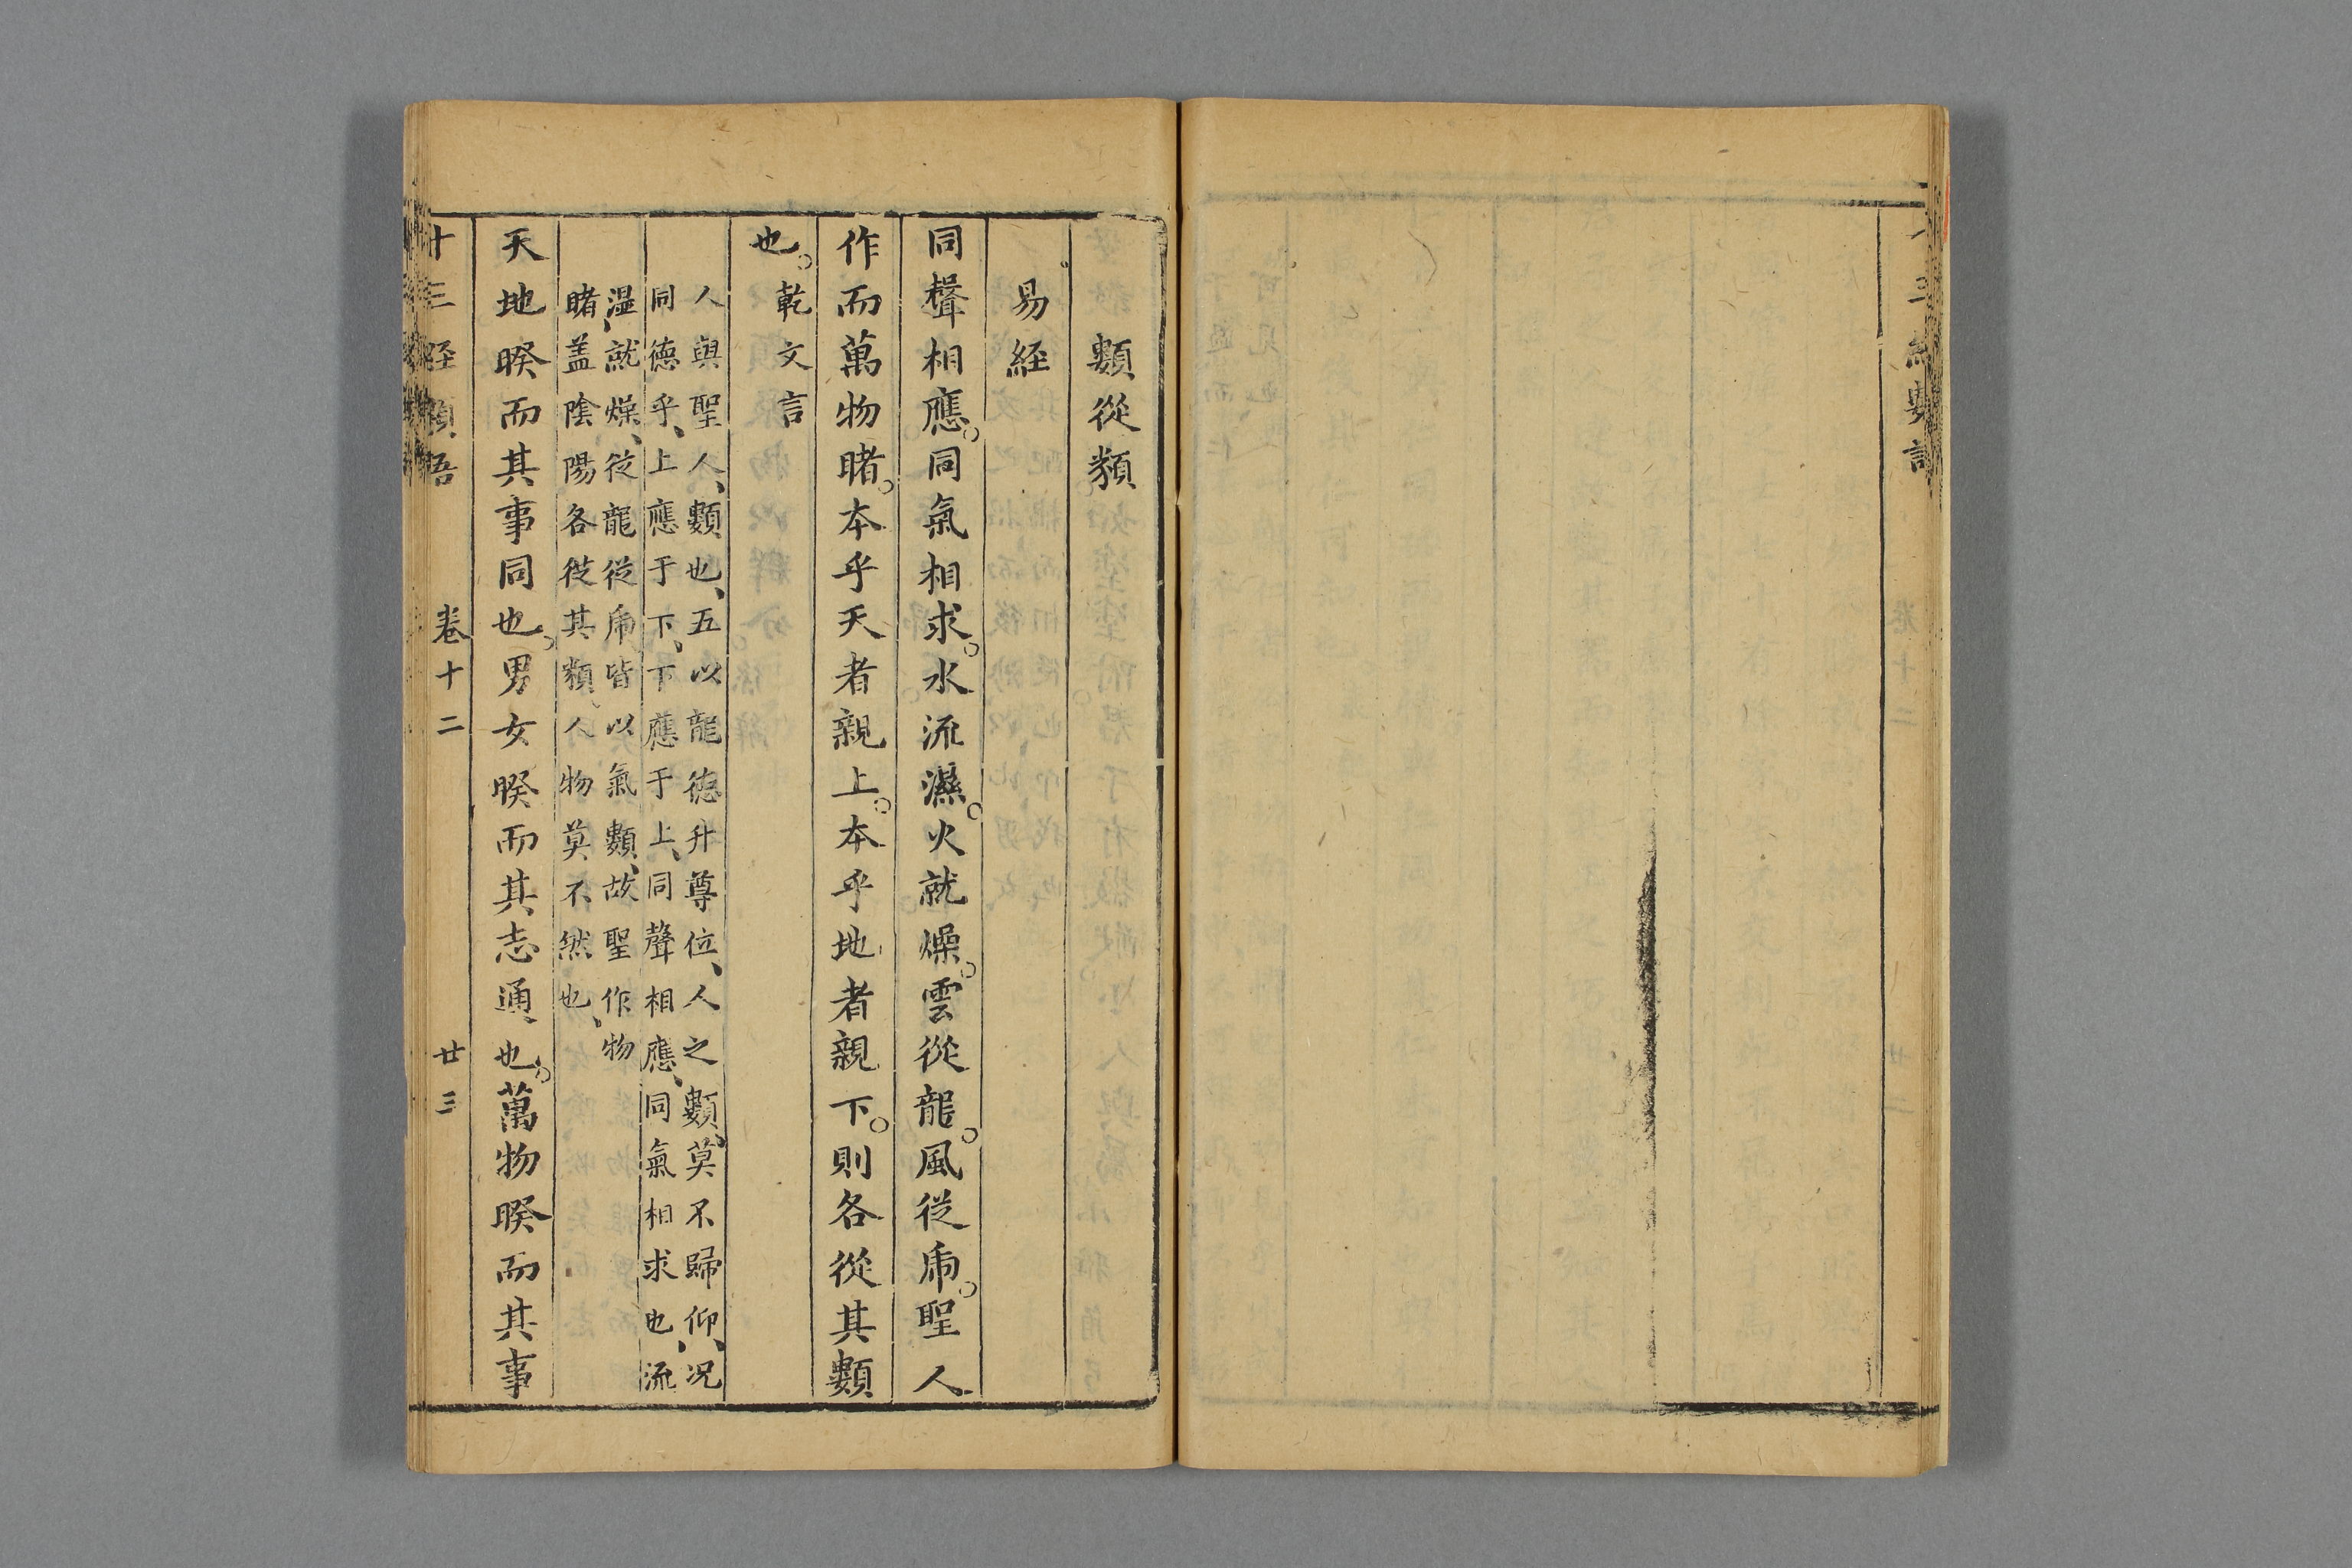 十三經類語
卷十二
廿二
類從類
易経
同聲相應。同氣相求。水流濕。火就燥。雲從龍。風從虎。聖人
作而萬物睹。本乎天者親上。本乎地者親下。則各從其類
也。乾文言
人與聖人、類也、五以龍德升尊位、人之類、莫不歸仰、况
同德乎、上應于下、下應于上、同聲相應、同氣相求也、流
湿、就燥、從龍從虎皆以氣類、故聖作物
睹、盖陰陽各從其類、人物莫不然也、
天地睽而其事同也。男女睽而其志通也。萬物睽而其事
十三経類語
卷十二
廿三